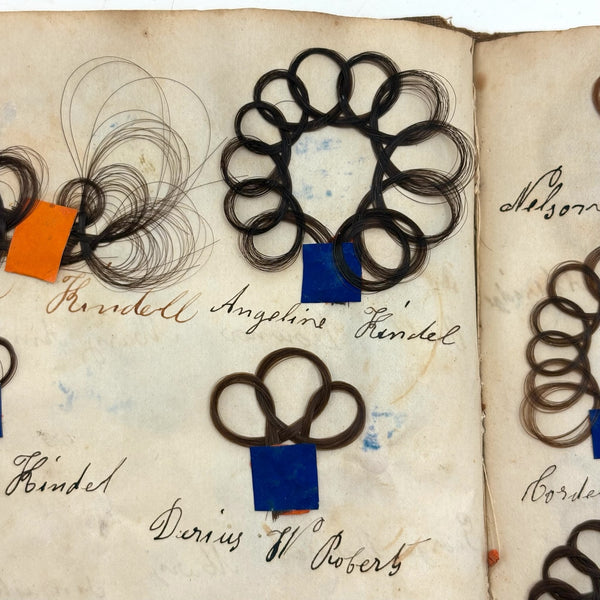 Kindell Angeline Kindel
Kindel
Darius W Roberts
Nelson
Corde